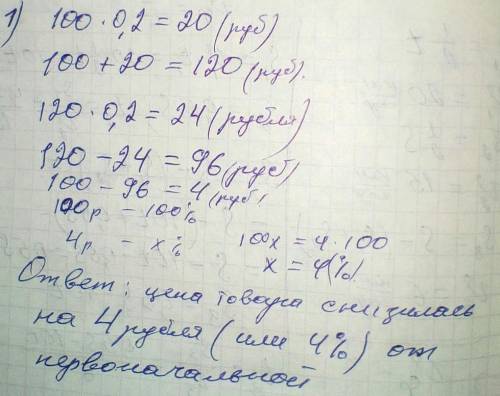 1) 100 · 0,2 = 20 (руб)
100 + 20 = 120 (руб).
120 · 0,2 = 24 (рубля)
120 − 24 = 96 (руб)
100 − 96 = 4 (руб)
100р = 100%
4р = x% 100x = 4 · 100
x = 4(%)
Ответ: цена товара снизилась
на 4 рубля (или 4%) от
первоначальной